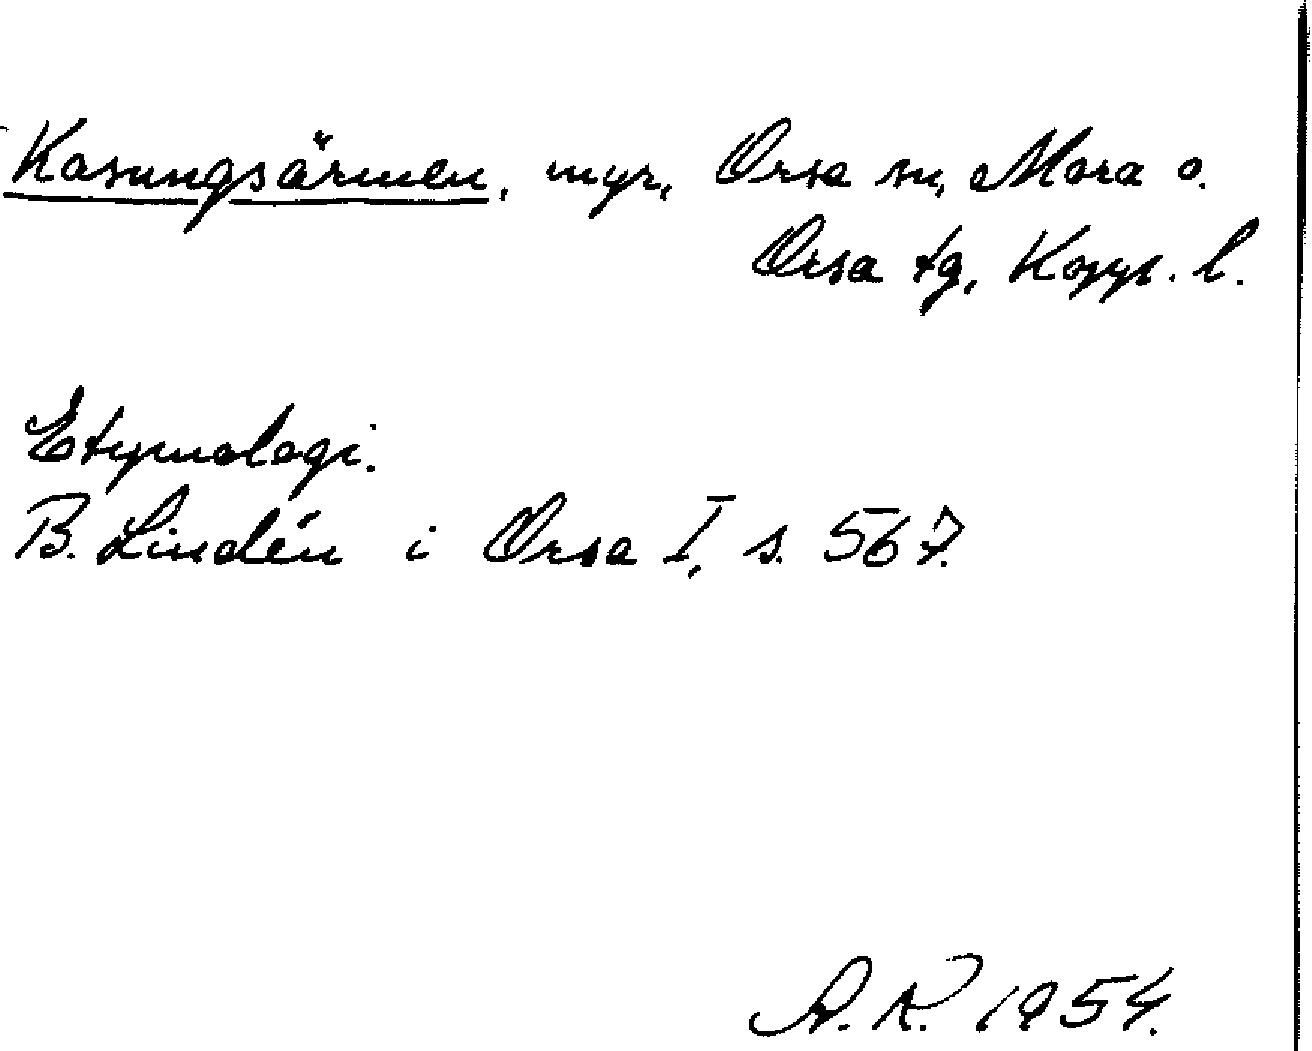 Kasungsärmen, myr, Orsa sn, Mora o.
Orsa tg, Kopp. l.
Etymologi.
B. Lindén i Orsa I, s. 567.
A.R. 1954.